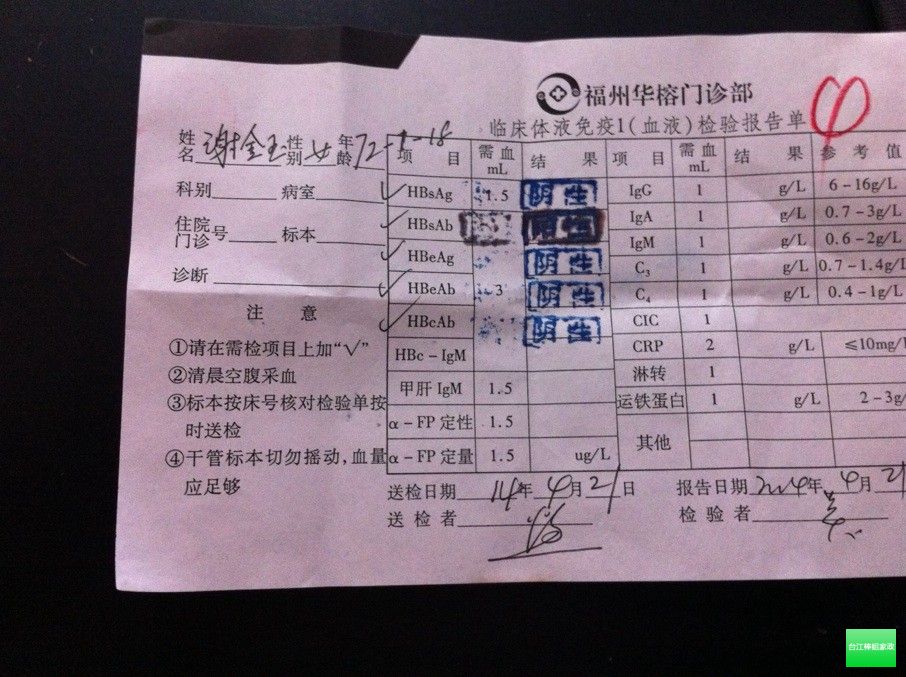 福州华榕门诊部
临床体液免疫1(血液)检验报告单
姓名 谢金玉 性别 女 年龄 72-1-18
科别 病室
住院门诊 号 标本
诊断
注 意
①请在需检项目上加“√”
②清晨空腹采血
③标本按床号核对检验单按
时送检
④干管标本切勿摇动,血量
应足够
项 目 需血mL 结 果 项 目 需血mL 结 果 参 考 值
√ HBsAg 1.5 阴性 IgG 1 g/L 6-16g/L
√ HBsAb IgA 1 g/L 0.7-3g/L
√ HBeAg 阴性 IgM 1 g/L 0.6-2g/L
√ HBeAb 3 阴性 C₃ 1 g/L 0.7-1.4g/L
√ HBcAb 阴性 C₄ 1 g/L 0.4-1g/L
HBc-IgM CIC 1
甲肝 IgM 1.5 CRP 2 g/L ≤10mg/
α-FP 定性 1.5 淋转 1
α-FP 定量 1.5 ug/L 运铁蛋白 1 g/L 2-3g/
其他
送检日期 14年 4月 21日 报告日期 2014年 4月 21
送 检 者 检 验 者
台江棒姐家政